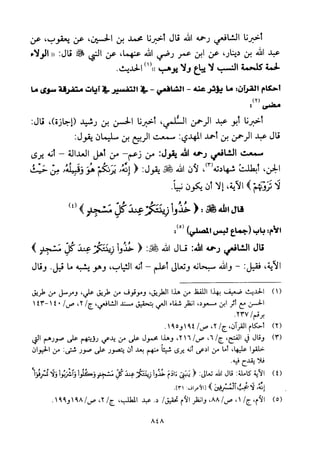 أخبرنا الشافعي رحمه الله قال أخبرنا محمد بن الحسين، عن يعقوب، عن
عبد الله بن دينار، عن ابن عمر رضي الله عنهما، عن النبي ﷺ قال: «الولاء
لحمة كلحمة النسب لا يباع ولا يوهب»(١) الحديث.
أحكام القرآن: ما يؤثر عنه - الشافعي - في التفسير في آيات متفرقة سوى ما
مضى(٢):
أخبرنا أبو عبد الرحمن السلمي، أخبرنا الحسن بن رشيد (إجازة)، قال:
قال عبد الرحمن بن أحمد المهدي: سمعت الربيع بن سليمان يقول:
سمعت الشافعي رحمه الله يقول: من زعم - من أهل العدالة - أنه يرى
الجن، أبطلتُ شهادته(٣)، لأن الله ﷻ يقول: ﴿ إِنَّهُ يَرَىٰكُمْ هُوَ وَقَبِيلُهُ مِنْ حَيْثُ
لَا تَرَوْنَهُمْ ﴾ الآية، إلا أن يكون نبياً.
قال الله ﷻ: ﴿ خُذُوا زِينَتَكُمْ عِندَ كُلِّ مَسْجِدٍ ﴾(٤)
الأم: باب (جماع لبس المصلي)(٥):
قال الشافعي رحمه الله: قال الله ﷻ: ﴿ خُذُوا زِينَتَكُمْ عِندَ كُلِّ مَسْجِدٍ ﴾
الآية، فقيل: - والله سبحانه وتعالى أعلم - أنه الثياب، وهو يشبه ما قيل. وقال
(١) الحديث ضعيف بهذا اللفظ من هذا الطريق، وموقوف من طريق علي، ومرسل من طريق
الحسن مع أثر ابن مسعود، انظر شفاء العي بتحقيق مسند الشافعي، ج/٢، ص/١٤٠-١٤٣
برقم/٢٣٧.
(٢) أحكام القرآن، ج/٢، ص/١٩٤ و١٩٥.
(٣) وقال في الفتح، ج/٦، ص/٢١٦، وهذا محمول على من يدعي رؤيتهم على صورهم التي
خلقوا عليها، وأما من ادعى أنه يرى شيئاً منهم بعد أن يتصور على صور شتى: من الحيوان
فلا يقدح فيه.
(٤) الآية كاملة: قال الله تعالى: ﴿ يَٰبَنِىٓ ءَادَمَ خُذُوا زِينَتَكُمْ عِندَ كُلِّ مَسْجِدٍ وَكُلُوا وَاشْرَبُوا وَلَا تُسْرِفُوا
إِنَّهُ لَا يُحِبُّ الْمُسْرِفِينَ ﴾ [الأعراف: ٣١].
(٥) الأم، ج/١، ص/٨٨، وانظر الأم تحقيق/ د. عبد المطلب، ج/٢، ص/١٩٨ و١٩٩.
٨٤٨